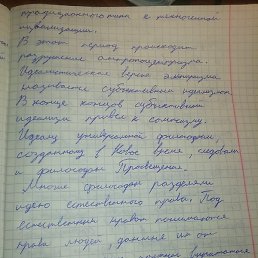 традиционного типа к техногенной
цивилизации.
В этот период происходит
разрушение антропоцентризма.
Идеалистическая версия эмпиризма
называется субъективный идеализм.
В конце концов субъективный
идеализм привёл к солипсизму.
Идеалу универсальной философии,
созданному в Новое время, следовали
и философы Просвещения.
Многие философы разделяли
идею естественного права. Под
естественным правом понимаются
права людей, данные им от